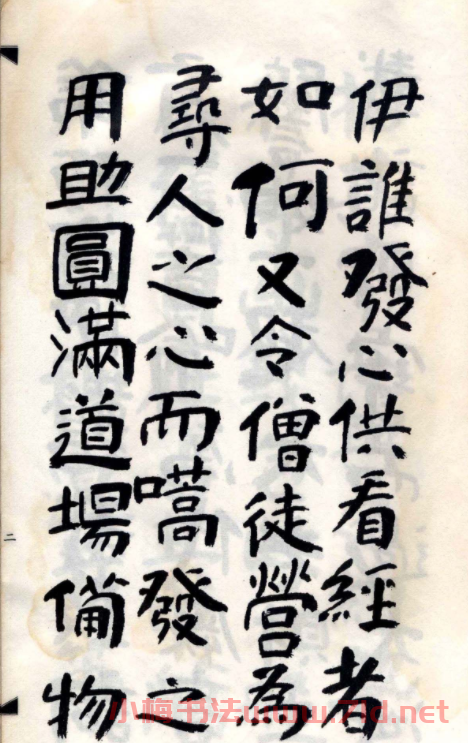 伊誰發心供看經者
如何又令僧徒營為
尋人之心而嗃發之
用助圓滿道場備物
二
小梅书法www.71d.net